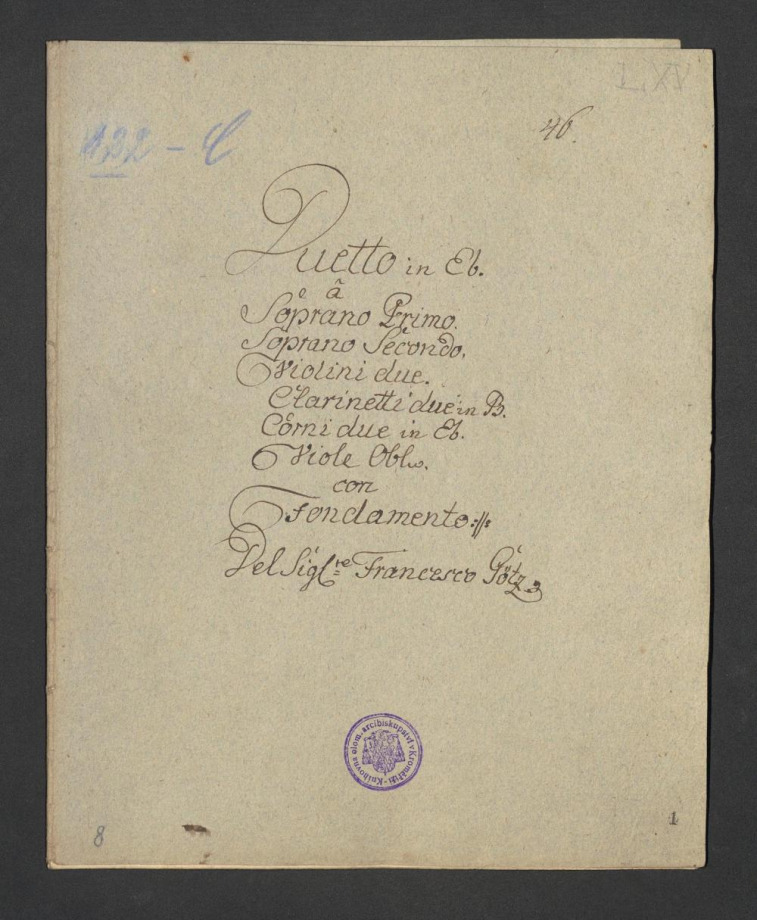 L, XV
46.
132 - C
Duetto in Eb.
à
Soprano Primo.
Soprano Secondo.
Violini due.
Clarinetti due in B.
Corni due in Eb.
Viole Obl.
con
Fondamento
Del Sigl:re Francesco Götz
Knihovna olom. arcibiskupství v Kroměříži
8
1